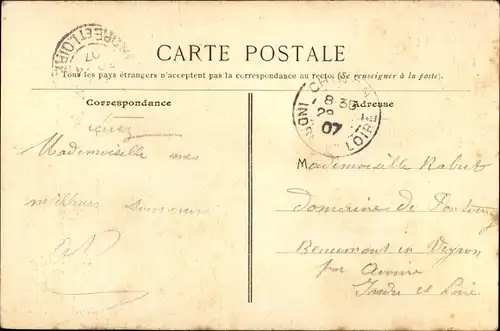 CARTE POSTALE
Tous les pays étrangers n'acceptent pas la correspondance au recto. (Se renseigner à la poste).
Correspondance
Adresse
INDRE ET LOIRE
07
8 30
29
07
INDRE LOIRE
Mademoiselle mes
meilleurs
Mademoiselle Rabert
Domaine de
Beaumont en Veyron
par Avoine
Indre et Loire